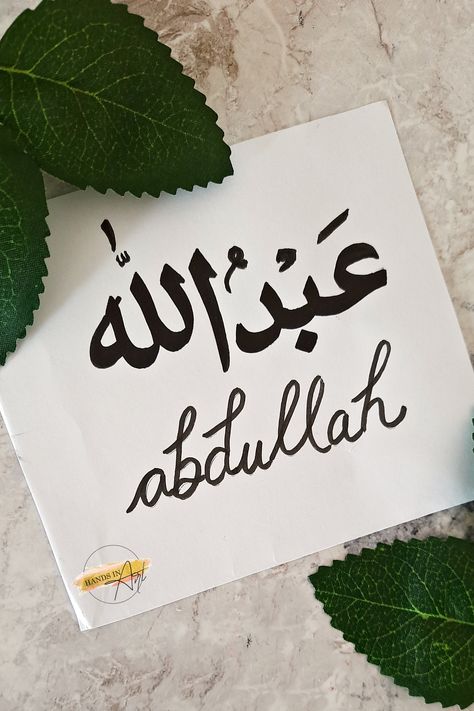 عَبْدُ اللّٰه
abdullah
HANDS IN Art